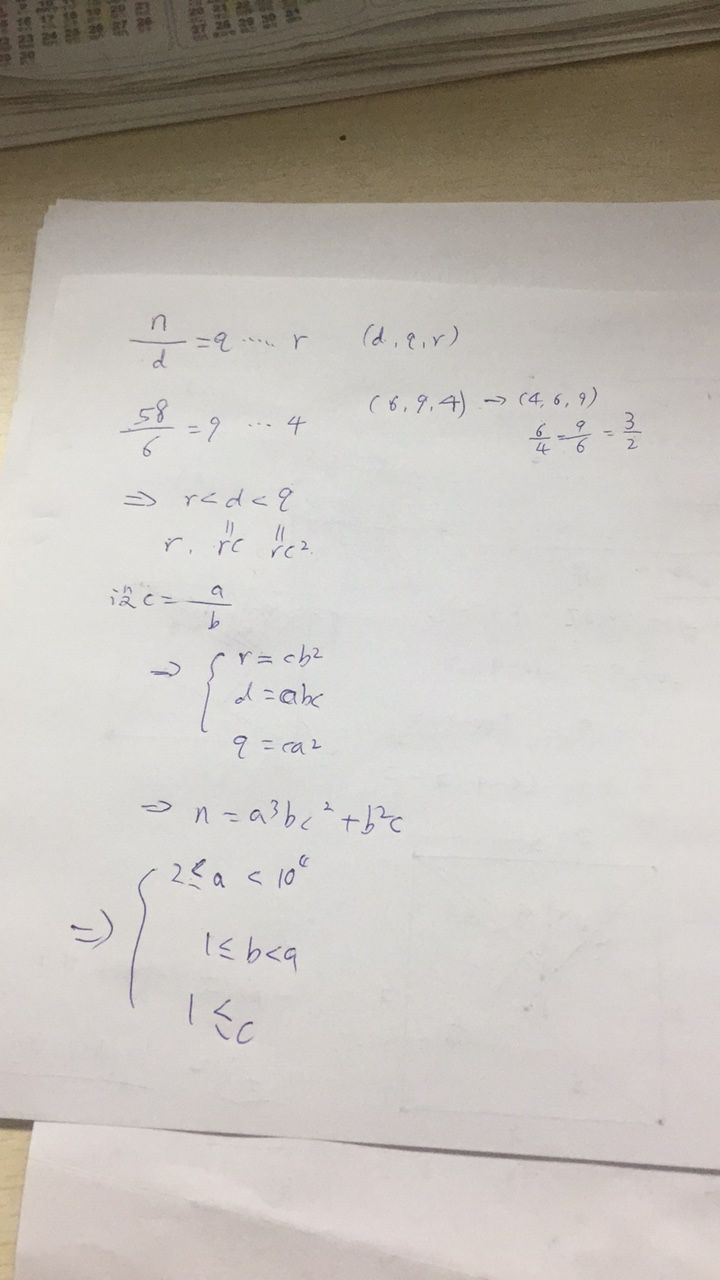 n/d = q ..... r (d, q, r)
58/6 = 9 ... 4 (6, 9, 4) → (4, 6, 9)
6/4 = 9/6 = 3/2
⇒ r < d < q
r. rc rc².
记 c = a/b
⇒ { r = cb²
d = abc
q = ca²
⇒ n = a³bc² + b²c
⇒ { 2 ≤ a < 10⁴
1 ≤ b < a
1 ≤ c